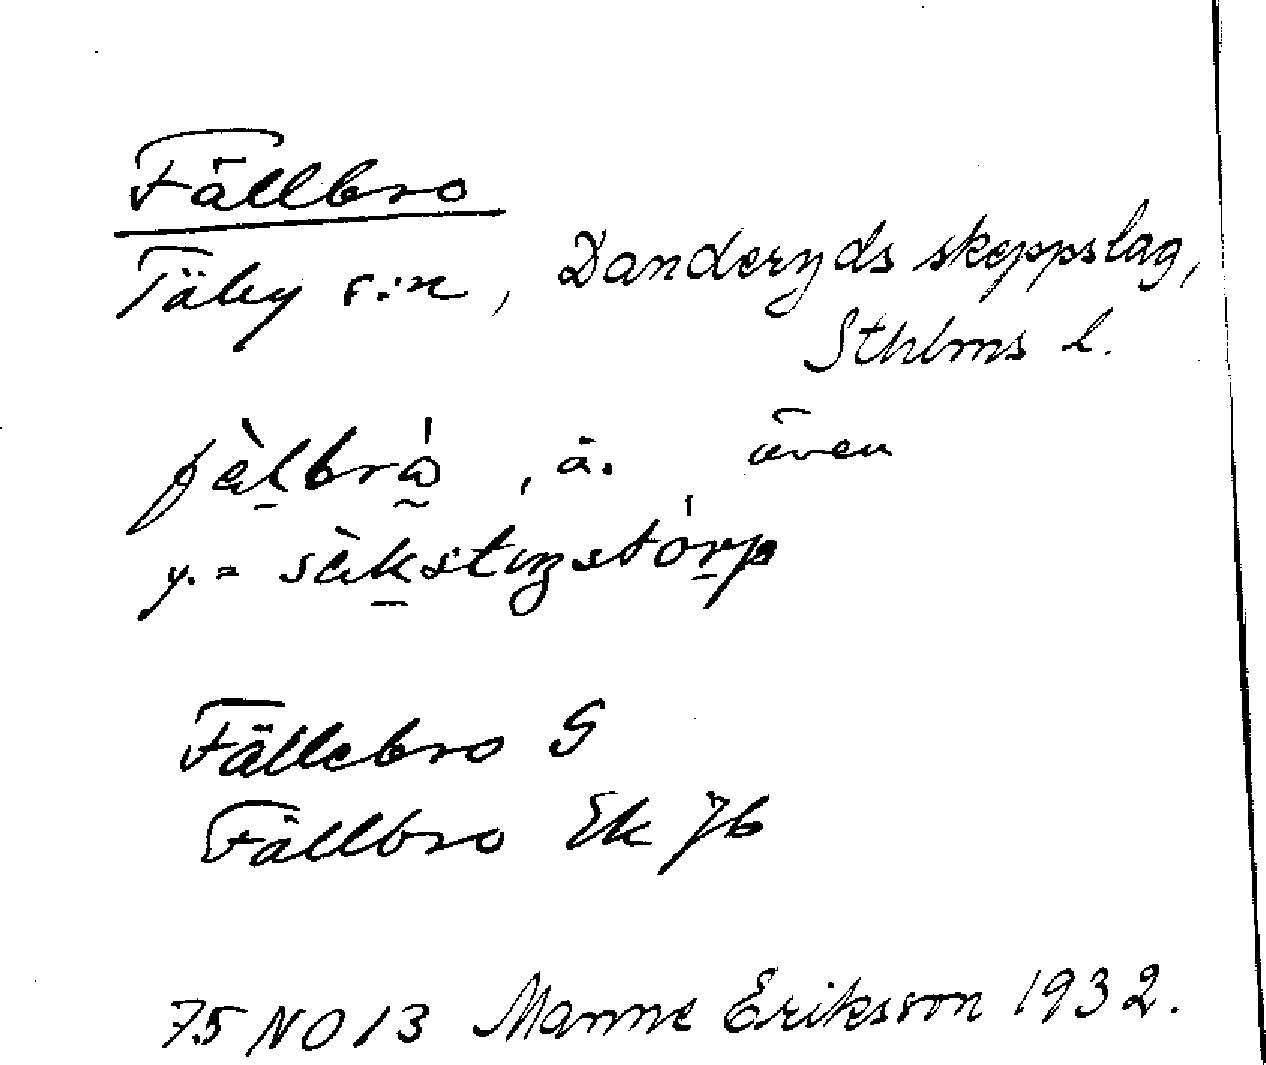 Fällbro
Täby s:n, Danderyds skeppslag,
Sthlms l.
fä̀lbrǻ, ä. även
y. = sä̀kstiŋstórp
Fällebro G
Fällbro Ek 76
75 NO 13 Manne Eriksson 1932.